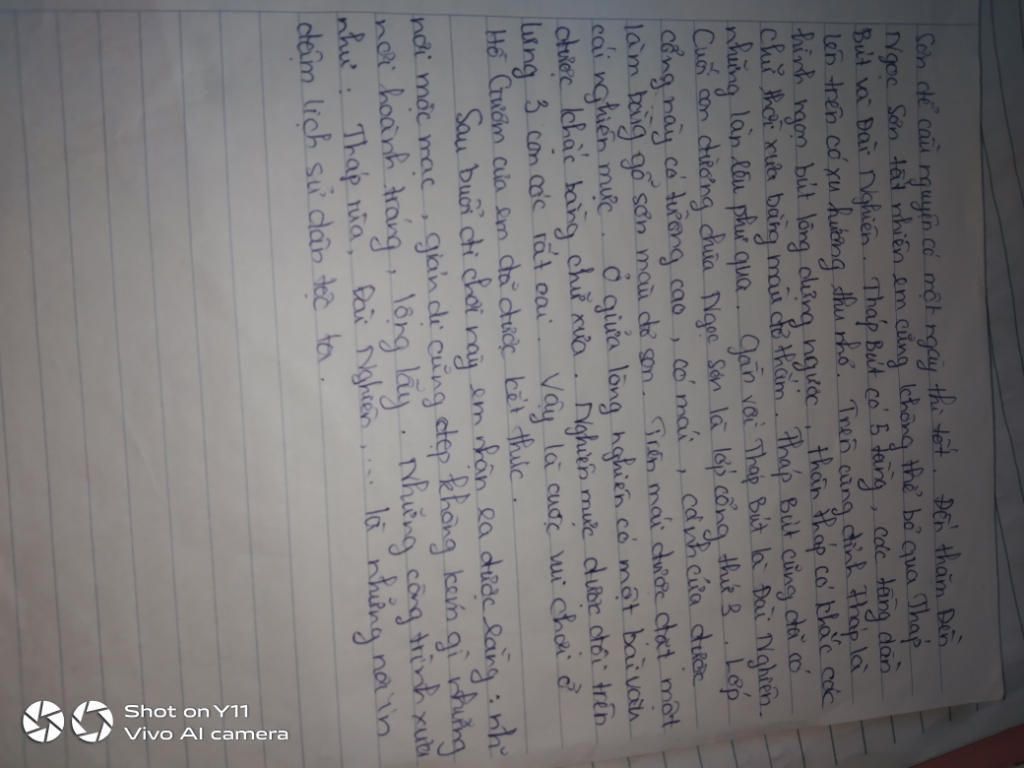 Sơn để cầu nguyện có một ngày thi tốt. Đến thăm Đền
Ngọc Sơn tất nhiên em cũng không thể bỏ qua Tháp
Bút và Đài Nghiên. Tháp Bút có 5 tầng, các tầng dần
lên trên có xu hướng thu nhỏ. Trên cùng đỉnh tháp là
hình ngọn bút lông dựng ngược, thân tháp có khắc các
chữ thời xưa bằng màu đỏ thẫm. Tháp Bút cũng đã có
những lần tu phư qua. Gần với Tháp Bút là Đài Nghiên.
Cuối con đường chùa Ngọc Sơn là lớp cổng thứ 3. Lớp
cổng này có tường cao, có mái, cánh cửa được
làm bằng gỗ sơn màu đỏ son. Trên mái được đặt một
cái nghiên mực. Ở giữa lòng nghiên có một bài văn
được khắc bằng chữ xưa. Nghiên mực được đội trên
lưng 3 con cóc rất oai. Vậy là cuộc vui chơi ở
Hồ Gươm của em đã được kết thúc.
Sau buổi đi chơi này em nhận ra được rằng: những
nơi mộc mạc, giản dị cũng đẹp không kém gì những
nơi hoành tráng, lộng lẫy. Những công trình xưa
như: Tháp rùa, Đài Nghiên,... là những nơi in
đậm lịch sử dân tộc ta.
Shot on Y11
Vivo AI camera